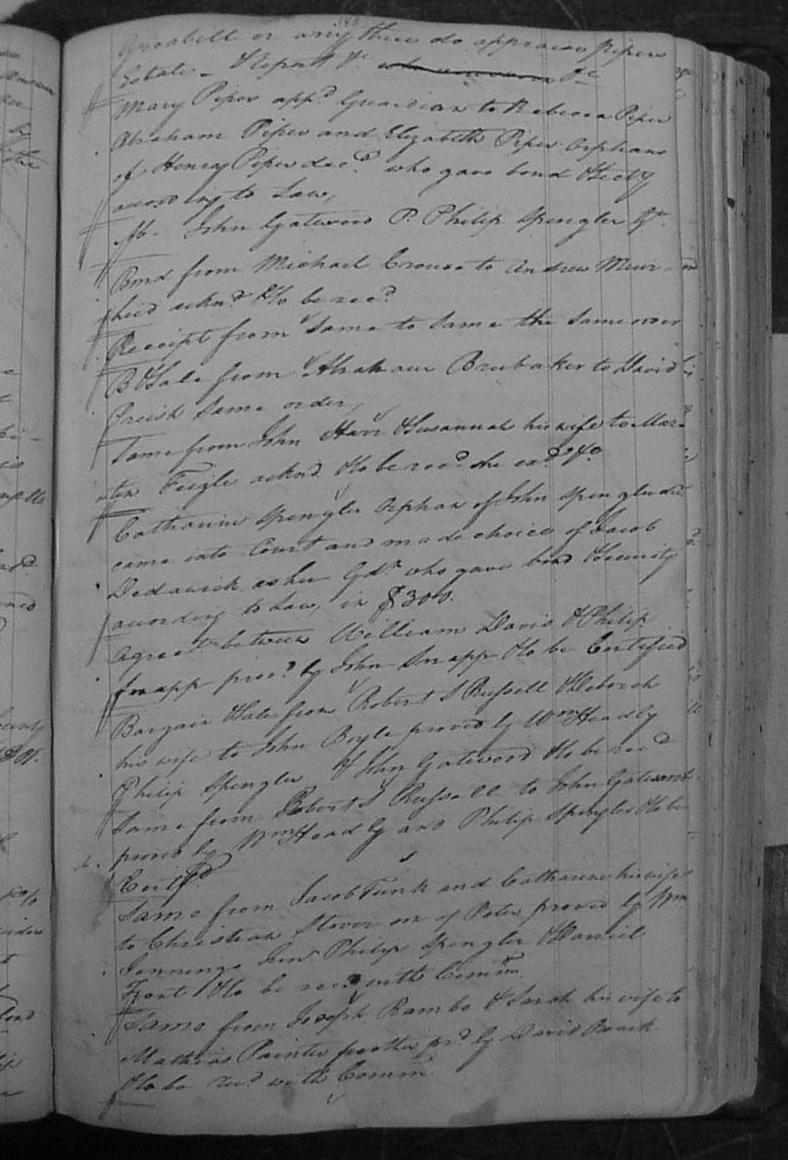 or any three do appraise Pipers
Estate - & Report &c
Mary Piper appd Guardian to Rebecca Piper
Abraham Piper and Elizabeth Piper Orphans
of Henry Piper decd who gave bond & Secty
according to Law,
Ab. John Gatewood P. Philip Spengler Gt.
Bond from Michael Crouse to Andrew Muir
heid acknd & to be recd
Receipt from Same to Same the Same order
B & Sale from Abraham Brubaker to David
Same order,
Same from John Harr & Susannah his wife to Mar-
tin Feegle acknd & to be recd she exd &c
Catharine Spengler Orphan of John Spengler decd
came into Court and made choice of Jacob
as her Gdn who gave bond & Security
according to Law, in $300.
Agreet between William Davis & Philip
Snapp provd by John Snapp & to be Certified
Bargain & Sale from Robert S Russell & Deborah
his wife to John Boyle proved by Wm Headly
Philip Spengler & John Gatewood & to be recd
Same from Robert S Russell to John Gatewood
proved by Wm Headly and Philip Spengler & to be
Certfd
Same from Jacob Funk and Catharine his wife
to Christian Stover son of Peter proved by Wm
Jennings Junr Philip Spengler & Daniel
& to be recd with Commn
Same from Joseph Rambo & Sarah his wife to
Mathias Painter further prd by David
& to be recd with Commn